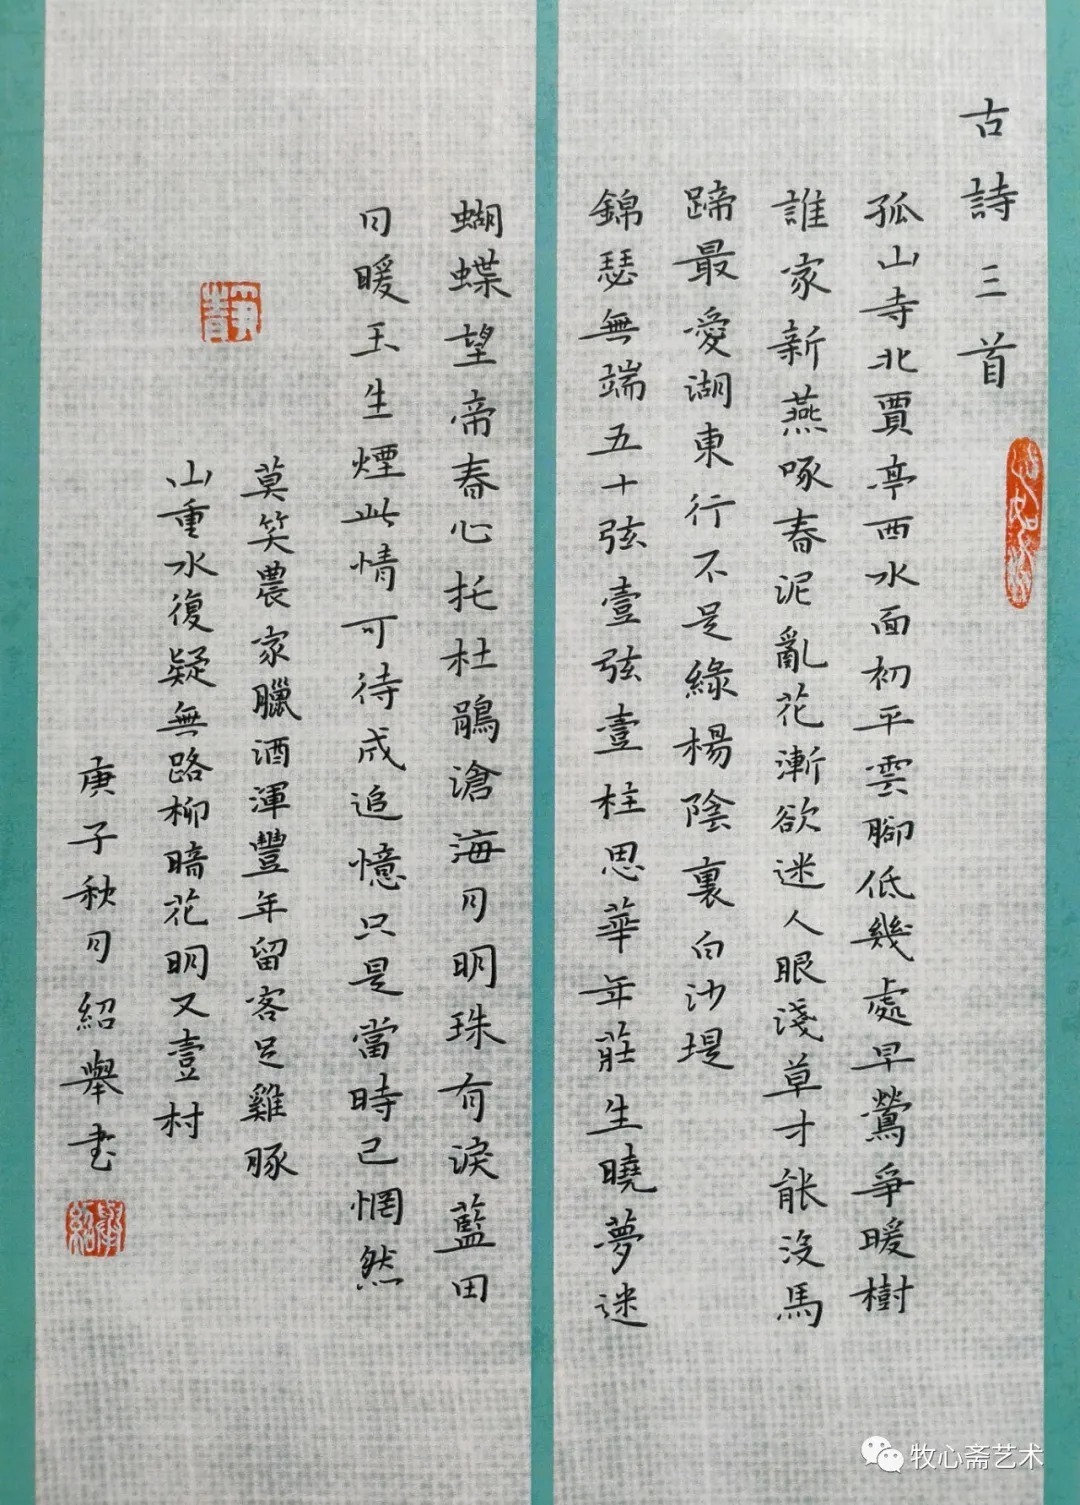 古詩三首
孤山寺北賈亭西水面初平雲腳低幾處早鶯爭暖樹
誰家新燕啄春泥亂花漸欲迷人眼淺草才能沒馬
蹄最愛湖東行不足綠楊陰裏白沙堤
錦瑟無端五十弦壹弦壹柱思華年莊生曉夢迷
蝴蝶望帝春心托杜鵑滄海月明珠有淚藍田
日暖玉生煙此情可待成追憶只是當時已惘然
莫笑農家臘酒渾豐年留客足雞豚
山重水復疑無路柳暗花明又壹村
庚子秋月紹舉書
牧心斋艺术